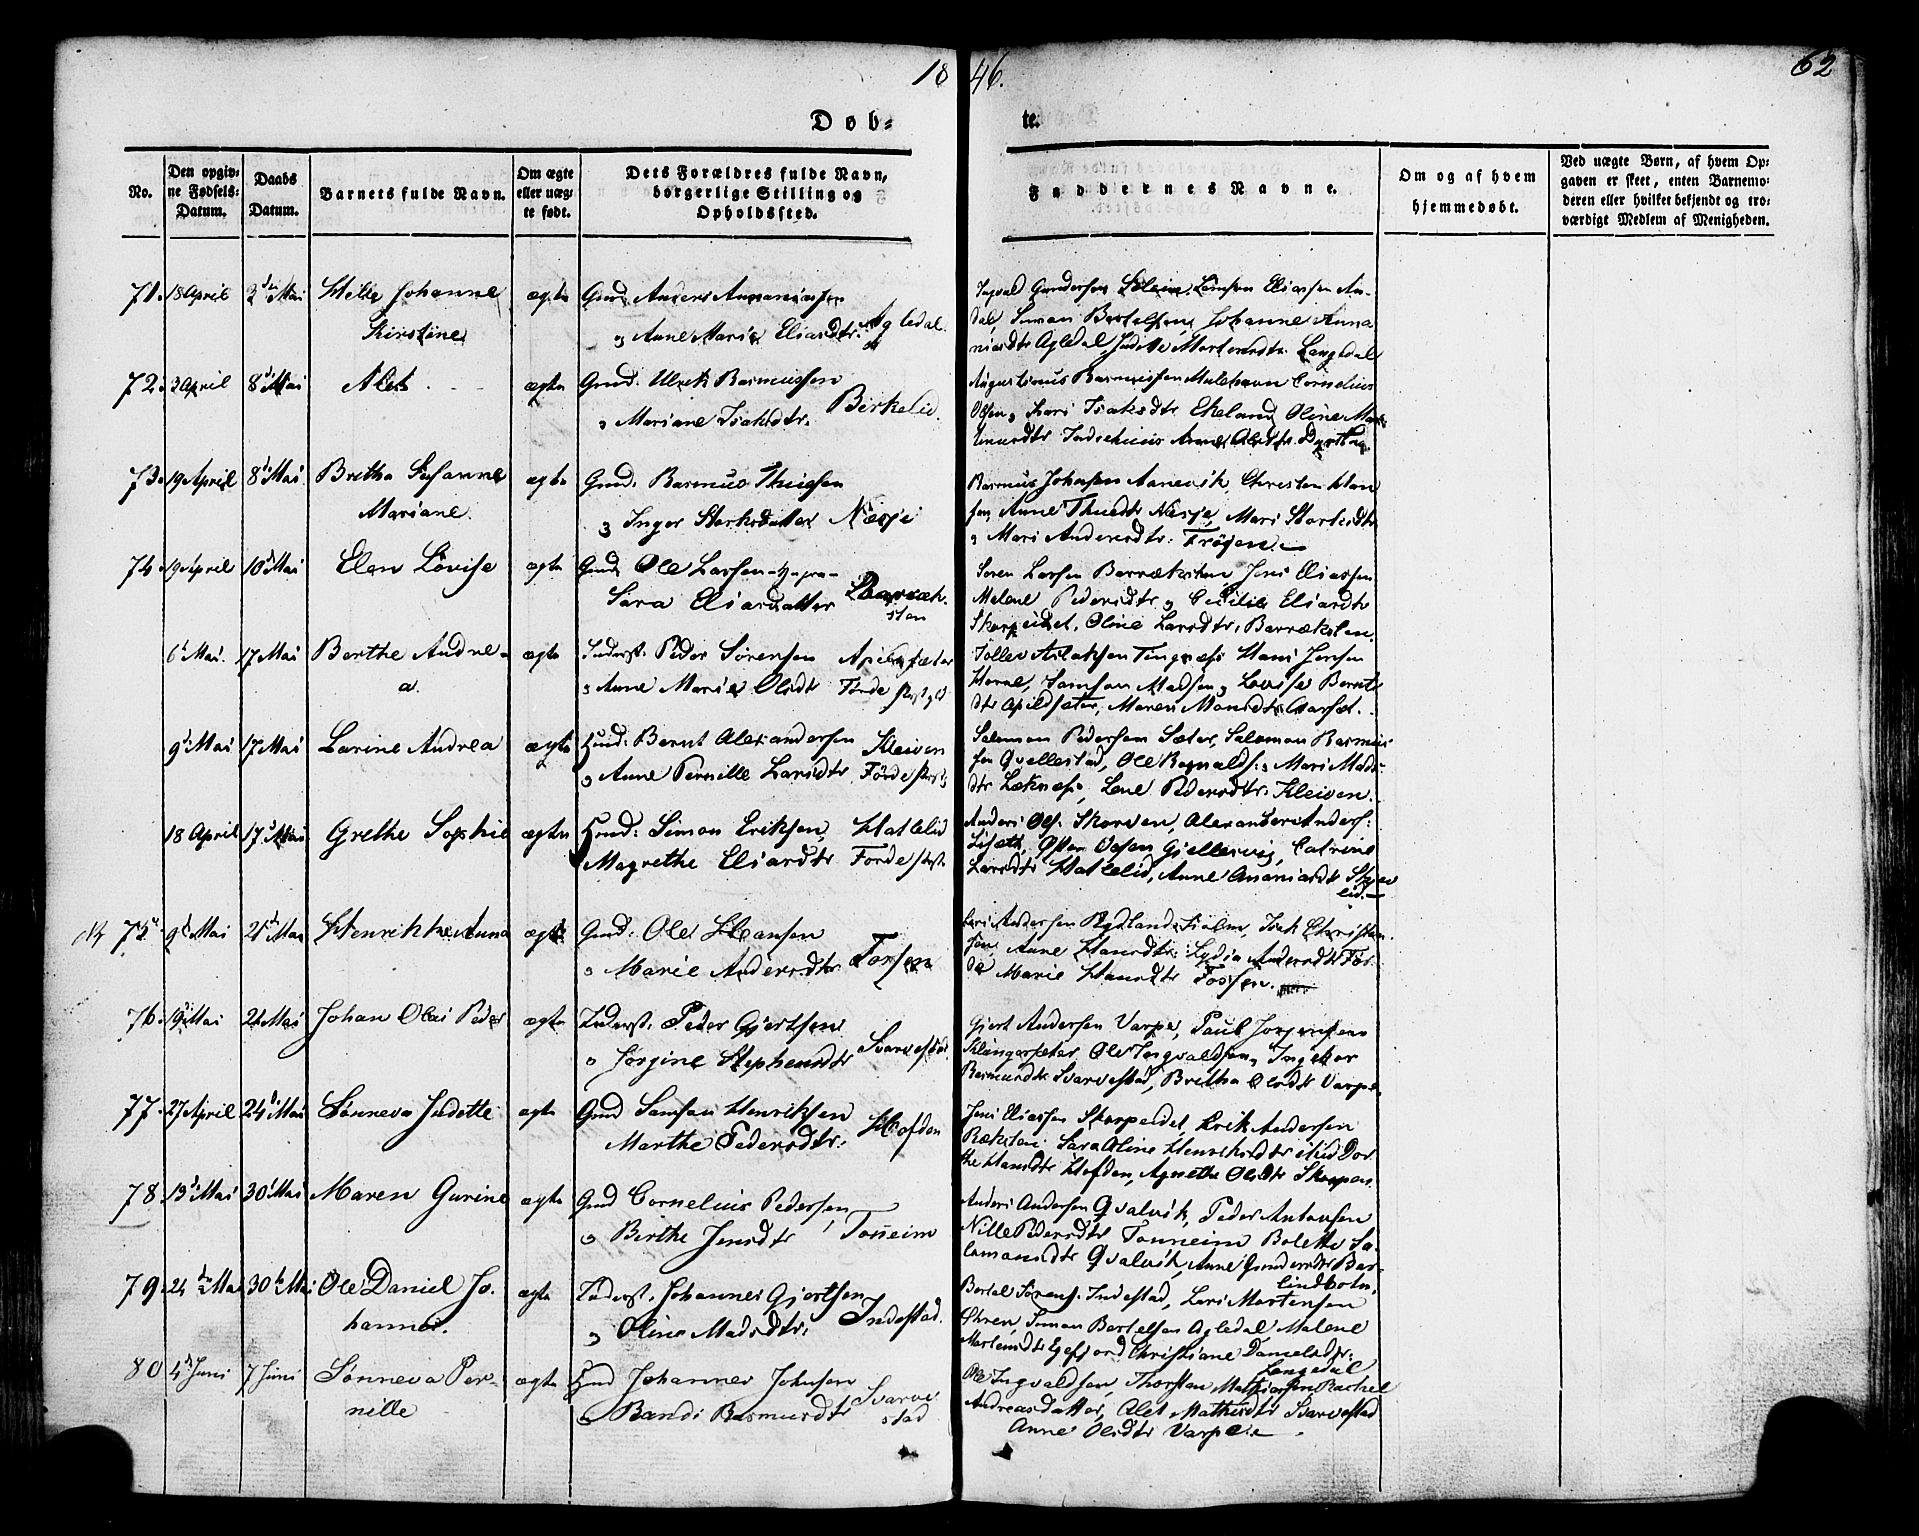 1846.
62
Døb-
te.
No.
Den opgiv-
ne Fødsels-
Datum.
Daabs
Datum.
Barnets fulde Navn.
Om ægte
eller uæg-
te født.
Dets Forældres fulde Navn,
borgerlige Stilling og
Opholdssted.
Faddernes Navne.
Om og af hvem
hjemmedøbt.
Ved uægte Børn, af hvem Op-
gaven er skeet, enten Barnemo-
deren eller hvilket bekjendt og tro-
værdigt Medlem af Menigheden.
71. 18 April Mai Johanne ægte Gmd Anders Ananiasen
Kirstine Anne Marie Eliasdtr. Agledal.
Ingvald Gundersen Samson Eliassen
Simon Bertelsen, Johanne Anna
niasdtr Agledal Judithe Mortensdtr. Langedal
72. 3 April 8 Mai Alet ægte Gmd: Ulrik Rasmussen
Mariane Isaksdtr. Birkelid.
Augustinus Rasmussen Cornelius
Olsen Kari Isaksdtr Ekeland, Oline
73. 19 April 8 Mai Britha Susanne ægte Gmd: Rasmus Thuesen
Mariane. & Inger Størksdatter Næsje
Rasmus Johnsen Aanevik, Christen Han
sen, Anne Thuesdtr Næsje, Mari Størksdtr
& Mari Andersdtr: Frøyen.
74. 19 April 10 Mai Elen Lovise ægte Gmd Ole Larsen
Sara Eliasdatter Barræk-
sten
Søren Larsen Barræksten, Jens Eliassen
Malene Pedersdtr & Cecilie Eliasdtr
Skorpeidet, Oline Larsdtr, Barræksten.
6 Mai. 17 Mai Berthe Andre- ægte Inderst. Peder Sørensen
a. & Anne Marie Olsdtr Førde
Tollev Aslaksen Tingnæs Hans Jensen
Horne, Samson Madsen & Lovise Bernts
dtr Apildsæter, Maren Monsdtr
9 Mai 17 Mai Larine Andrea ægte Huusmd: Bernt Alexandersen Kleiven
& Anne Pernille Larsdtr. Førde
Salomon Pedersen Sæter, Salomon Rasmus
sen Qvellestad, Ole Rognalds: & Mari Mads
dtr Leknæs, Lene Pedersdtr. Kleiven.
18 April 17 Mai Grethe Sophie ægte Huusmd: Simon Eriksen, Hatlelid
Magrethe Eliasdtr Førde
Anders Ols: Skorven, Alexander Anders:
Lisæth, Osten Gjellesvig, Catrine
Larsdtr Hatlelid, Anne Ananiasdtr
75. 9 Mai 21 Mai Henrikke Anna ægte Gmd: Ole Hansen
& Marie Andersdtr. Fossen
Lars Andersen Rydland Isak Christen
sen, Anne Hansdtr. Lydia Andersdtr Før
de Marie Hansdtr Fossen.
76. 19 Mai 21 Mai Johan Olai Peder ægte Inderst. Peder Gjertsen
& Jørgine Stephensdtr Svarvestad
Gjert Andersen Varpe, Paul Jørgensen
Klungersæter, Ole Ingvaldsen, Ingebor
Rasmusdtr Svarvestad, Britha Olsdtr Varpe.
77. 27 April 24 Mai Sønneva Judette ægte Gmd Samson Henriksen
Marthe Pedersdtr: Hofden
Jens Eliassen Skorpeidet, Erik Andersen
Ræksten: Sara Oline Henriksdtr Dor
the Hansdtr Hofden, Agnethe Olsdtr Skorpen.
78. 13 Mai 30 Mai Maren Gurine ægte Gmd Cornelius Pedersen,
& Berthe Jensdtr Tonheim
Anders Andersen Qvalvik, Peder Antonsen
Nille Pedersdtr Tonheim Bolette Sa-
lamonsdtr Qvalvik, Anne Gundersdtr Bar-
lindbotn.
79. 24 Mai 30 Mai Ole Daniel Jo- ægte Inderst. Johannes Gjertsen
hannes. & Oline Madsdtr: Indestad.
Bertel Sørens: Indestad, Lars Mortensen
Øren, Simon Bertelsen Agledal, Malene
Mortensdtr Christiane Danielsdtr:
Langedal
80 4 Juni 7 Juni Sønneva Per- ægte Huusmd Johannes Johnsen
nille & Randi Rasmusdtr Svarve
stad
Ole Ingvaldsen, Thorsten Mathiassen Rachel
Andreasdatter, Alet Mathisdtr Svarvestad
Anne Olsdtr Varpe.